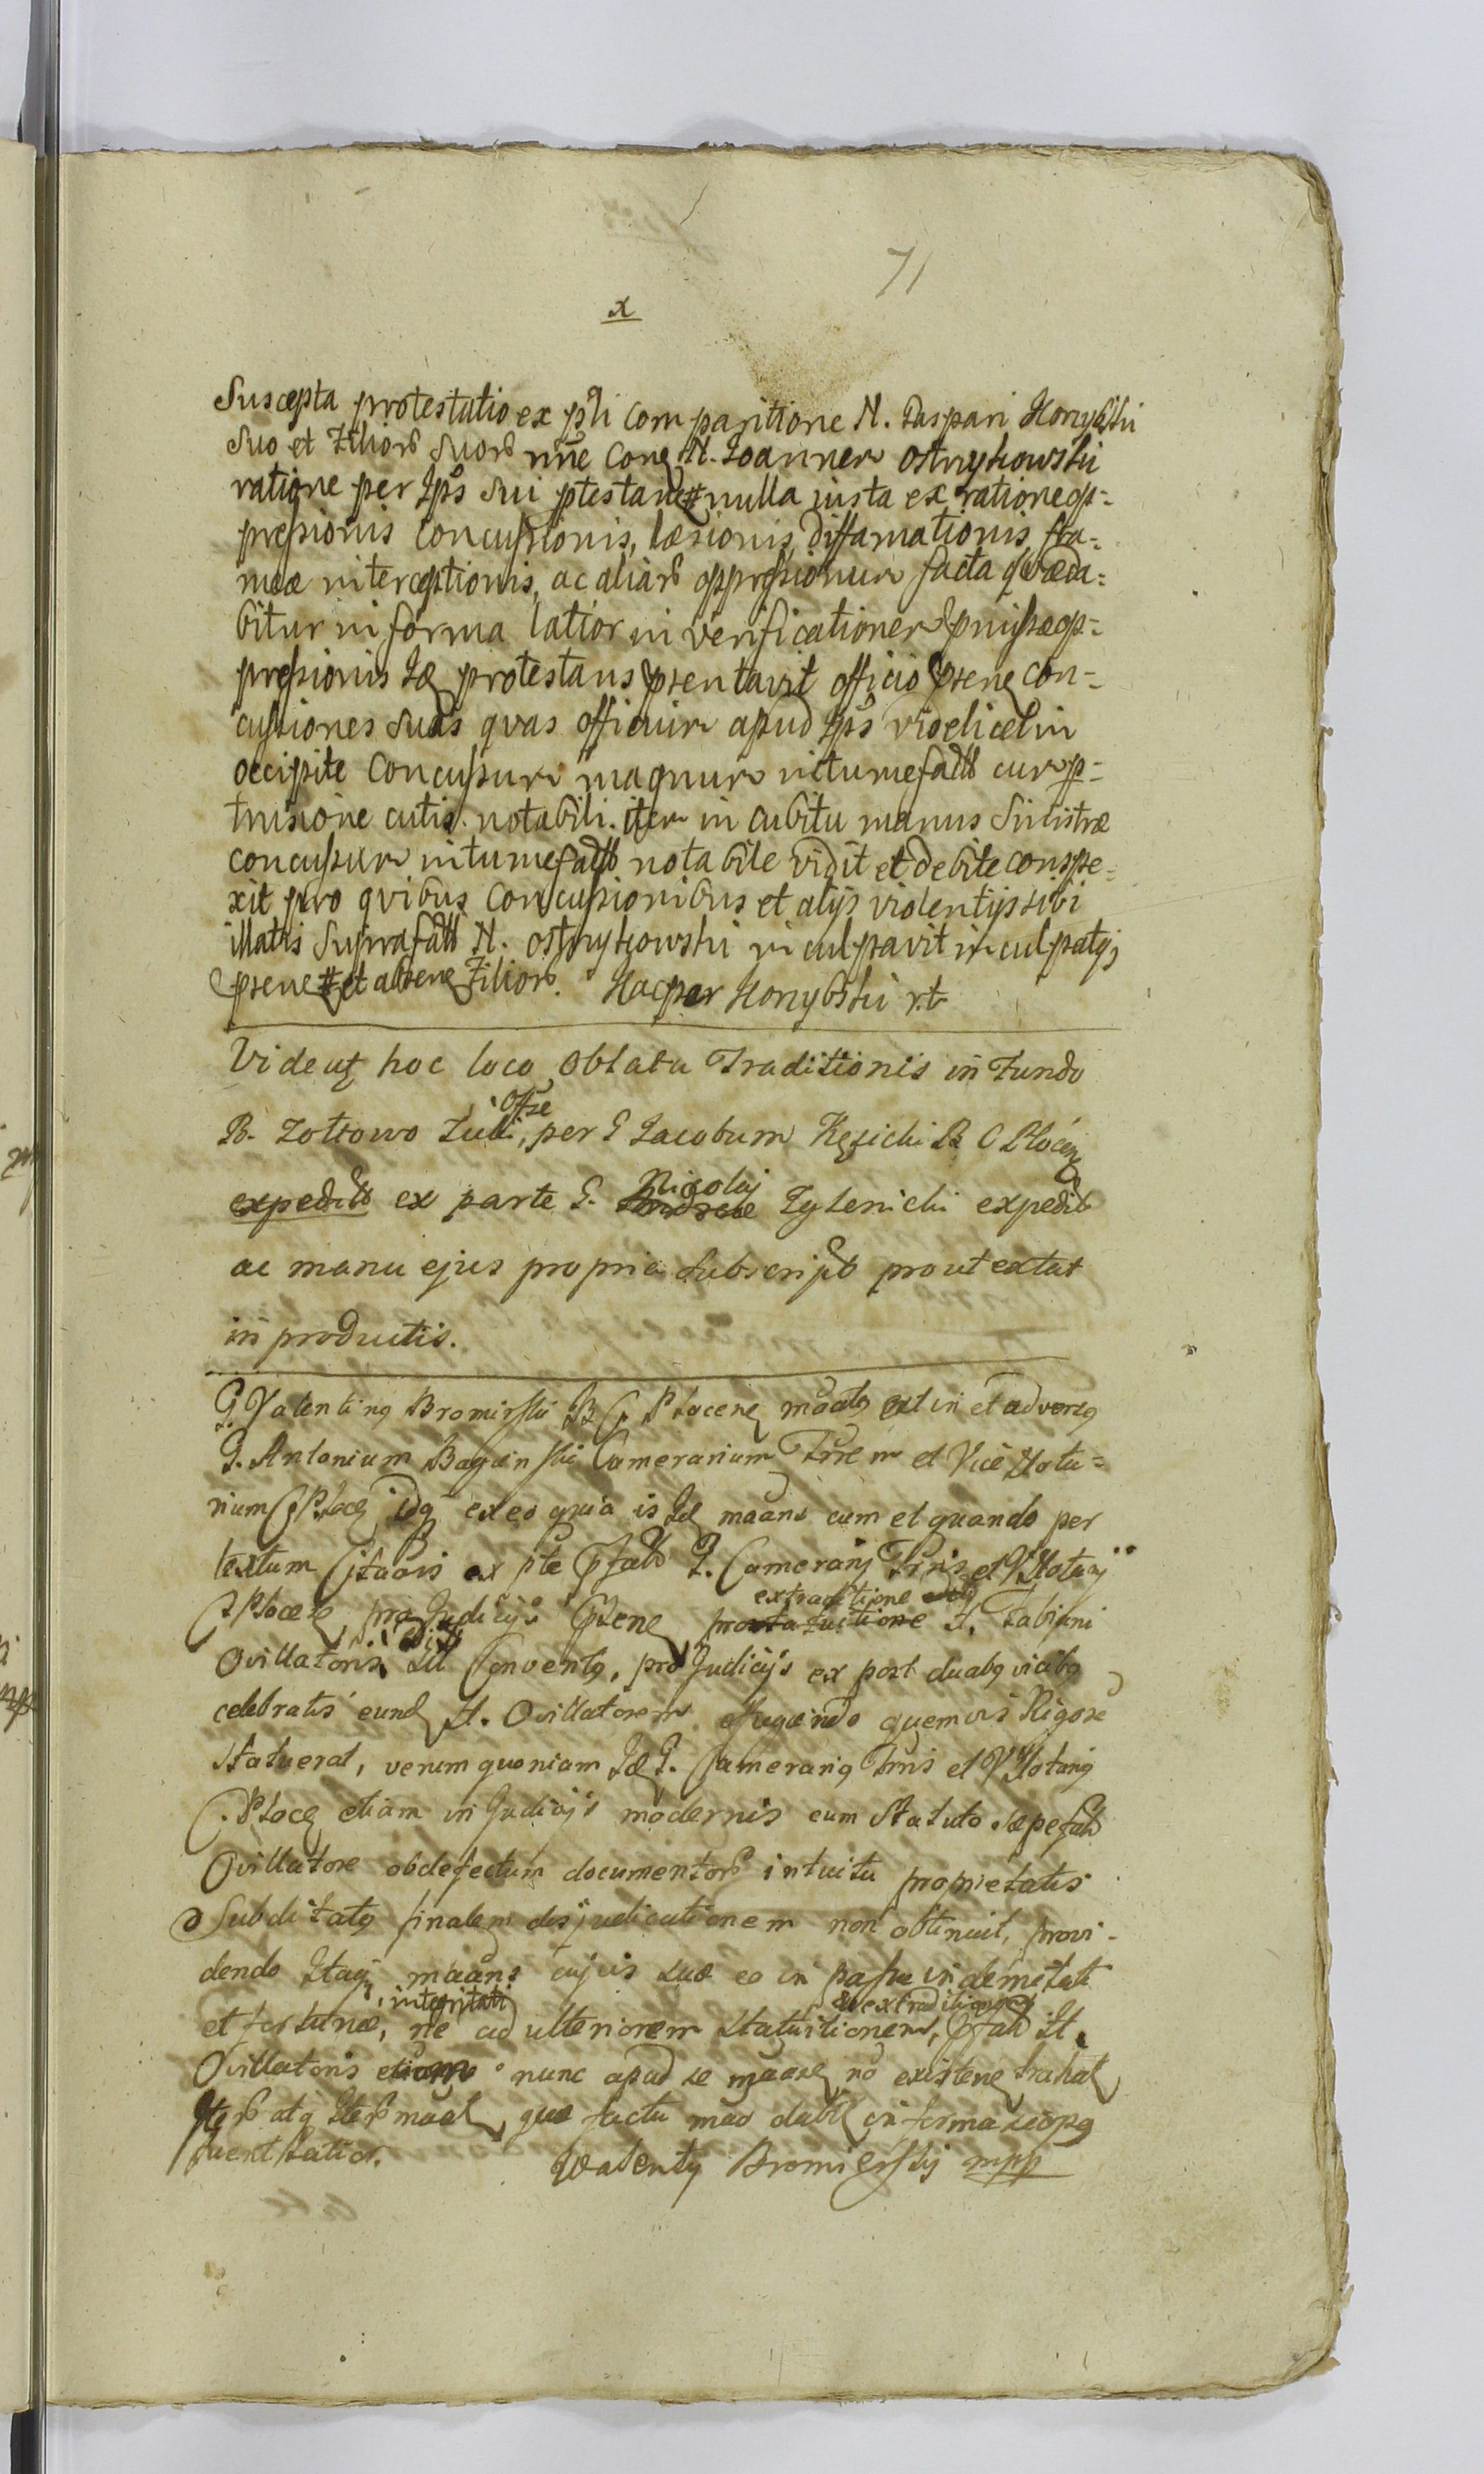 71
x
Suscepta protestatio ex psti comparitione N. Caspari Konybski
suo et Filior suor nne Con N. Joannem ostrykowski
ratione per Ips sui ptestan nulla iusta ex ratione op=
pressionis concussionis, læsionis, diffamationis, fa=
mæ interceptionis, ac aliar oppressionum facta qvæ da=
bitur in forma latior in verificationem pmissæ op=
pressionis Id protestans psentavit officio psene con=
cussiones suas qvas officium apud Ips videlicet in
occipite concussum magnum intumefact cum p=
trusione cutis notabili. item in cubitu manus sinistræ
concussum intumefact notabile vidit et debite conspe=
xit pro qvibus concussionibus et alijs violentijs sibi
illatis suprafatt N. ostrykowski inculpavit inculpatq
psene et absene Filior. Kacper Konybski rt
Videat hoc loco Oblata Traditionis in Fundo
Offse
B. Zottowo per G Jacobum Kęsicki B C Plocen
Nicolaj
expedit ex parte G. Andreæ Zglenicki expedit
ac manu ejus propria subscript prout extat
in productis.
G. Valentinq Bromirski B C Plocene maatq est in et adversq
G. Antonium Baginski Camerarium Trrem et Vice Nota=
rium C Plocq idq ex eo quia is Id maans cum et quando per
textum Citaois ex pte pfatt G. Camerarij Trris et VNotarij
extraditione
C Plocen pro Judicijs psene pro statuitione H. Fabiani
Ovillatoris Conventq, pro Judicijs ex post duabq vicibq
celebratis eund H. Ovillatorem quemvis Rigore
statuerat, verum quoniam Id G. Camerariq Trris et VNotariq
C. Plocq etiam in Judicijs modernis cum Statuto sæpefatt
Ovillatore ob defectum documentor intuitu proprietatis
Subditatq finalem disjudicationem non obtinuit, provi-
dendo Itaq maans cujus suæ eo in passu indemnitati
integritati & extraditionem
et fortunæ, ne ad ulteriorem statuitionem, pfatt H.
Ovillatoris etiam nunc apud se no existene trahat
Iter atq Iter maat, quæ facta mao dabit in forma
fuerit latior. Walenty Bromierskij mpp